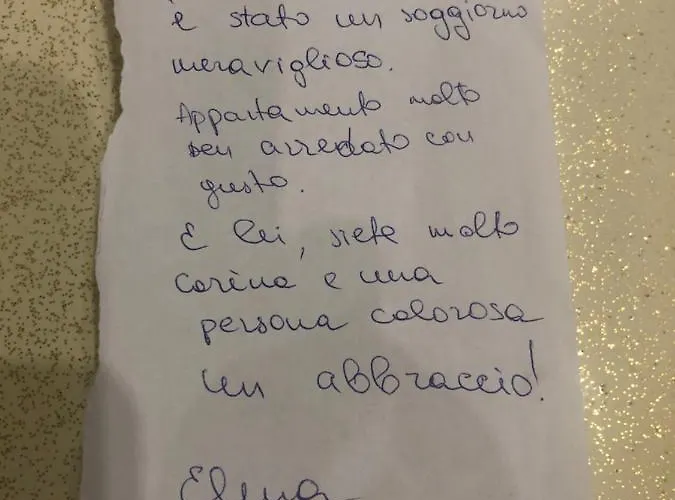 è stato un soggiorno
meraviglioso.
Appartamento molto
ben arredato con
gusto.
E lei, siete molto
carina e una
persona calorosa
un abbraccio!
Elena